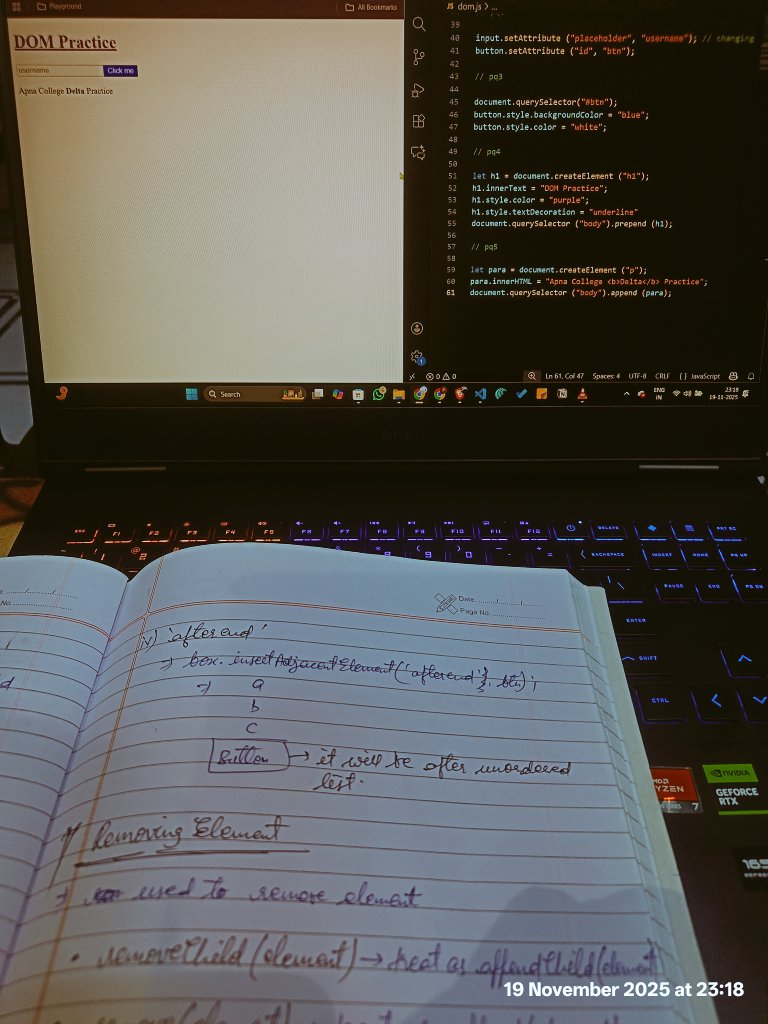 Playground
All Bookmarks
DOM Practice
username
Click me
Apna College Delta Practice
dom.js > ...
39
40 input.setAttribute ("placeholder", "username"); // changing
41 button.setAttribute ("id", "btn");
42
43 // pq3
44
45 document.querySelector("#btn");
46 button.style.backgroundColor = "blue";
47 button.style.color = "white";
48
49 // pq4
50
51 let h1 = document.createElement ("h1");
52 h1.innerText = "DOM Practice";
53 h1.style.color = "purple";
54 h1.style.textDecoration = "underline"
55 document.querySelector ("body").prepend (h1);
56
57 // pq5
58
59 let para = document.createElement ("p");
60 para.innerHTML = "Apna College <b>Delta</b> Practice";
61 document.querySelector ("body").append (para);
0 0
Ln 61, Col 47 Spaces: 4 UTF-8 CRLF {} JavaScript
Search
ENG
IN
23:18
19-11-2025
OMEN
ESC F1 F2 F3 F4 F5 F6 F7 F8 F9 F10 F11 F12 DELETE PRT SC
BACKSPACE INSERT HOME PG UP
PAUSE END PG DN
ENTER
SHIFT
CTRL
AMD
RYZEN
7
NVIDIA
GEFORCE
RTX
165
No.
Date
Page No.
iv) 'afterend'
→ box.insertAdjacentElement('afterend', btn);
→ a
b
c
Button → it will be after unordered
list.
Removing Element
→ used to remove element
• removeChild (element) → as appendChild (element)
19 November 2025 at 23:18